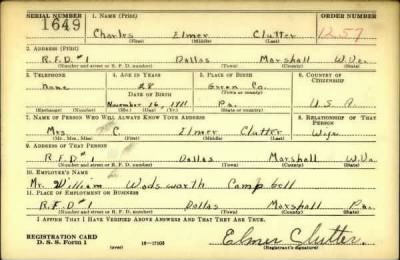 SERIAL NUMBER 1. NAME (Print) ORDER NUMBER
1649 Charles Elmer Clutter 1257
(First) (Middle) (Last)
2. ADDRESS (Print)
R.F.D.#1 Dallas Marshall W.Va.
(Number and street or R. F. D. number) (Town) (County) (State)
3. TELEPHONE 4. AGE IN YEARS 5. PLACE OF BIRTH 6. COUNTRY OF CITIZENSHIP
None 28 Green Co.
DATE OF BIRTH (Town or county)
November 16, 1911 Pa. U.S.A.
(Exchange) (Number) (Mo.) (Day) (Yr.) (State or country)
7. NAME OF PERSON WHO WILL ALWAYS KNOW YOUR ADDRESS 8. RELATIONSHIP OF THAT PERSON
Mrs. C. Elmer Clutter Wife
(Mr., Mrs., Miss) (First) (Middle) (Last)
9. ADDRESS OF THAT PERSON
R.F.D.#1 Dallas Marshall W.Va.
(Number and street or R. F. D. number) (Town) (County) (State)
10. EMPLOYER'S NAME
Mr. William Wadsworth Campbell
11. PLACE OF EMPLOYMENT OR BUSINESS
R.F.D.#1 Dallas Marshall Pa.
(Number and street or R. F. D. number) (Town) (County) (State)
I AFFIRM THAT I HAVE VERIFIED ABOVE ANSWERS AND THAT THEY ARE TRUE.
REGISTRATION CARD
D. S. S. Form 1 (over) 16-17105 Elmer Clutter.
(Registrant's signature)